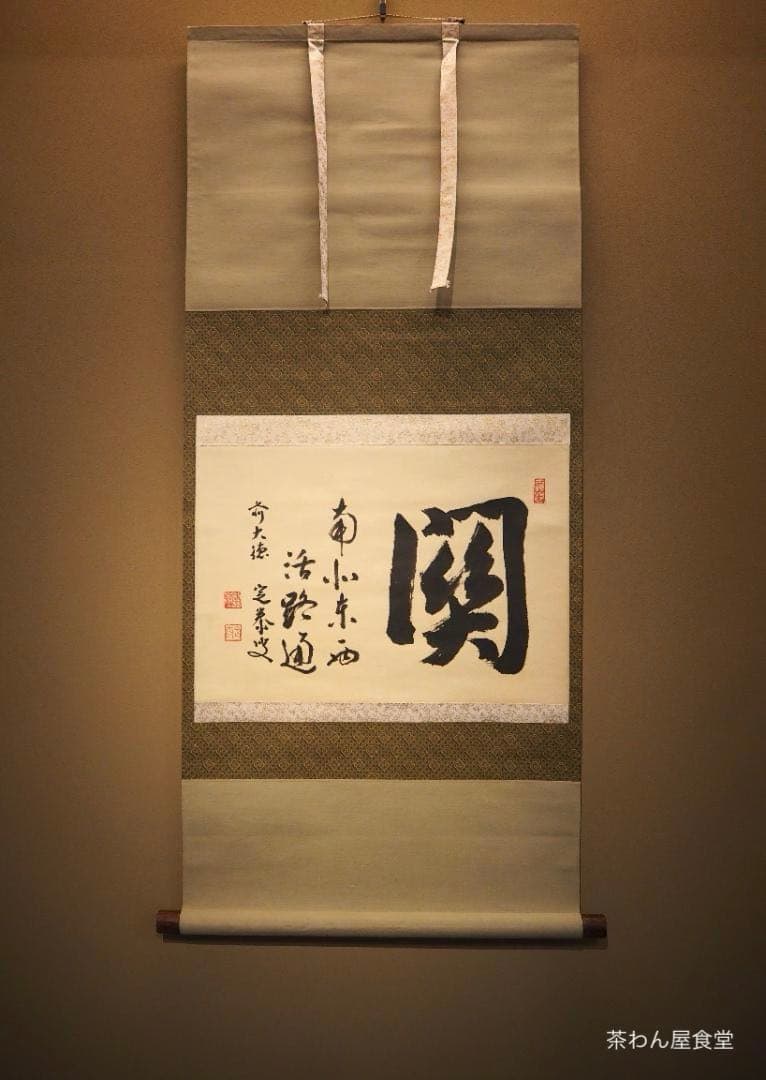 關
南北東西
活路通
前大德 定泰叟
茶わん屋食堂